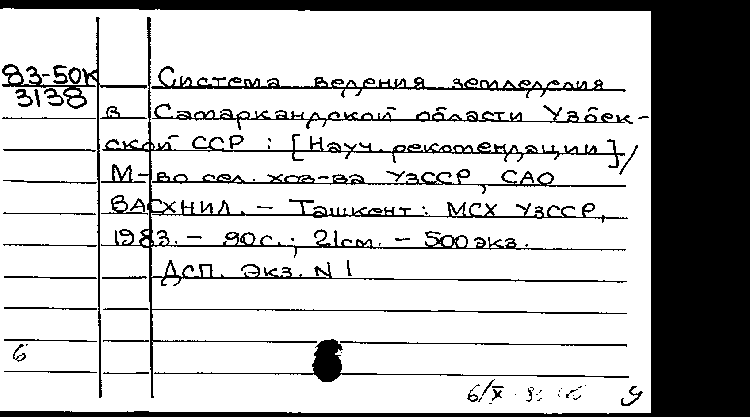 83-50К
3138
Система ведения земледелия
в Самаркандской области Узбек-
ской ССР : [Науч. рекомендации] /
М-во сел. хоз-ва УзССР, САО
ВАСХНИЛ. – Ташкент : МСХ УзССР,
1983. – 90 с. ; 21 см. – 500 экз.
ДСП. Экз. N 1
6
6/X
У